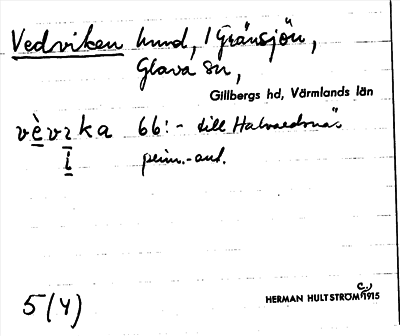 Vedviken hmd, i Gränsjön,
Glava sn,
Gillbergs hd, Värmlands län
vèvɪka 66:- till Halvardsnäs
ī
prim.-ant.
5(4)
HERMAN HULTSTRÖM c. 1915